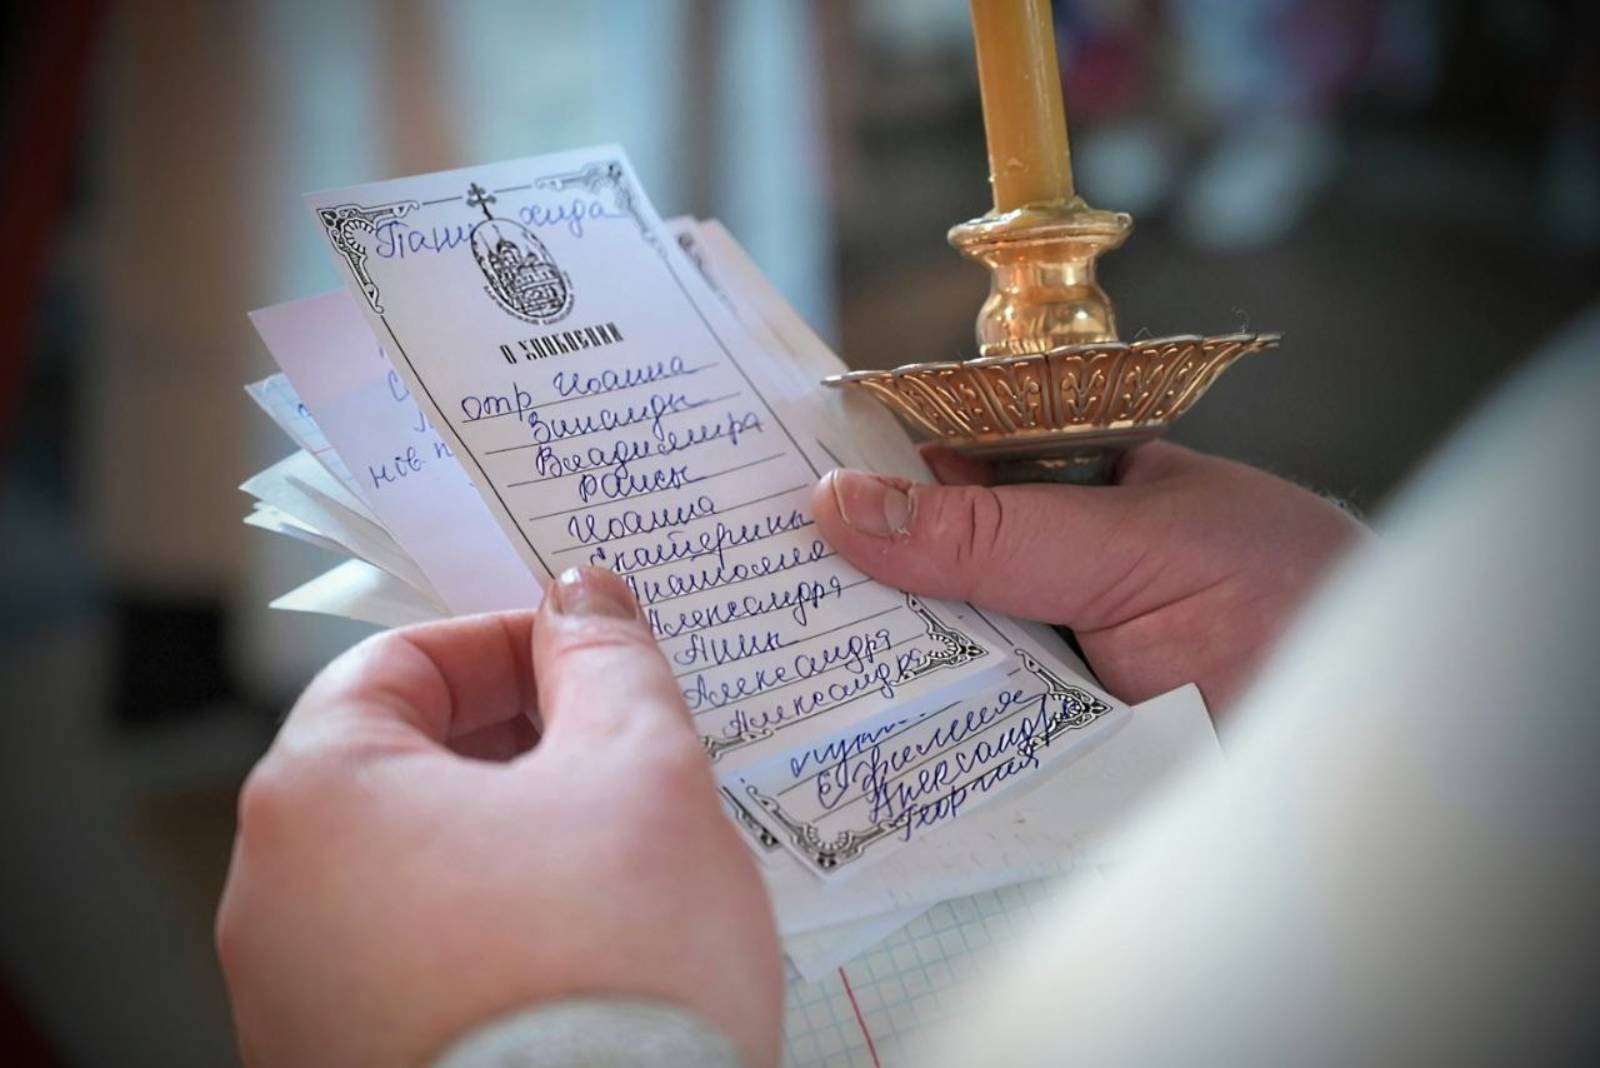 Панихида
О УПОКОЕНИИ
отр Иоанна
Зинаиды
Владимира
Раисы
Иоанна
Екатерины
Анатолия
Александра
Анны
Александра
Александра
нов. п
Александра
Георгия